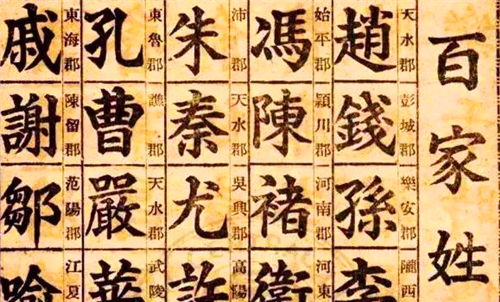 百家姓
天水郡 趙 彭城郡 錢 樂安郡 孫 隴西 李
始平郡 馮 潁川郡 陳 河南郡 褚 河東 衛
沛郡 朱 天水郡 秦 吳興郡 尤 高陽 許
東魯郡 孔 譙郡 曹 天水郡 嚴 武陵 華
東海郡 戚 陳留郡 謝 范陽郡 鄒 江夏 喻